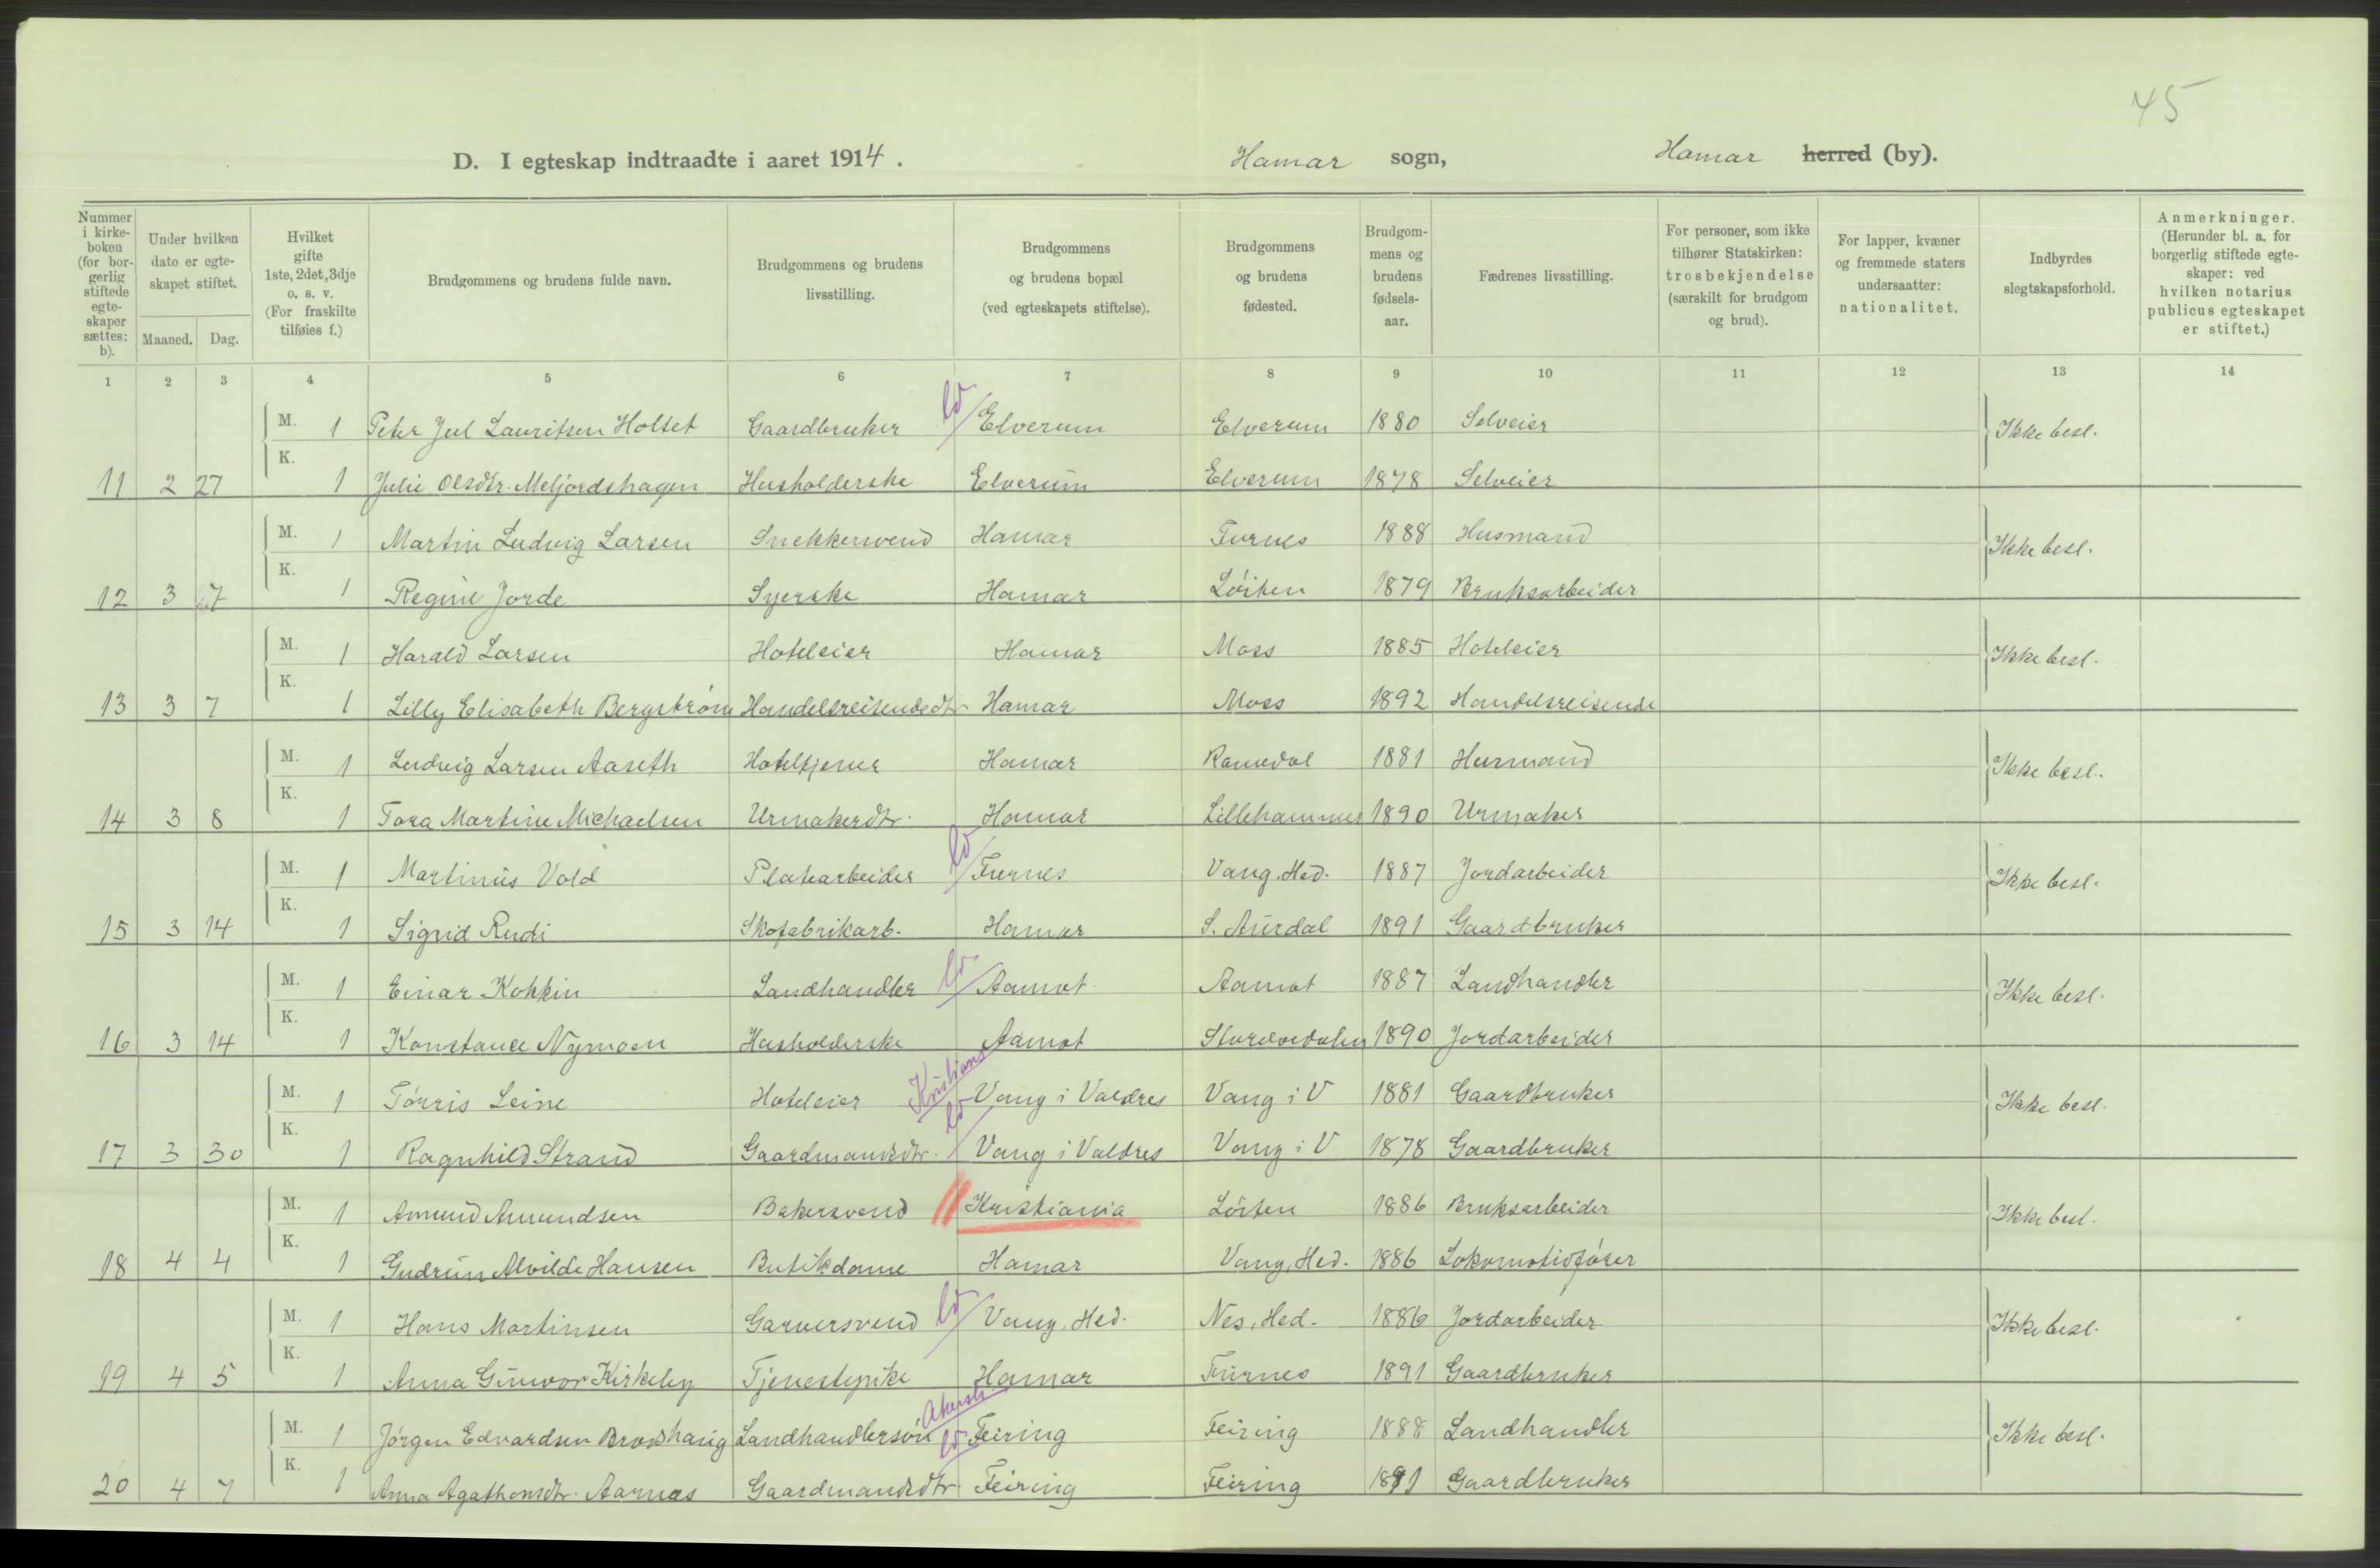 45
D. I egteskap indtraadte i aaret 1914. Hamar sogn, Hamar herred (by).
Nummer i kirkeboken (for borgerlig stiftede egteskaper sættes: b).
Under hvilken dato er egteskapet stiftet.
Maaned. Dag.
Hvilket gifte 1ste, 2det, 3dje o. s. v. (For fraskilte tilføies f.)
Brudgommens og brudens fulde navn.
Brudgommens og brudens livsstilling.
Brudgommens og brudens bopæl (ved egteskapets stiftelse).
Brudgommens og brudens fødested.
Brudgommens og brudens fødselsaar.
Fædrenes livsstilling.
For personer, som ikke tilhører Statskirken: trosbekjendelse (særskilt for brudgom og brud).
For lapper, kvæner og fremmede staters undersaatter: nationalitet.
Indbyrdes slegtskapsforhold.
Anmerkninger. (Herunder bl. a. for borgerlig stiftede egteskaper: ved hvilken notarius publicus egteskapet er stiftet.)
1 2 3 4 5 6 7 8 9 10 11 12 13 14
M. 1 Peter Juul Lauritsen Holtet Gaardbruker Elverum Elverum 1880 Selveier Ikke besl.
11 2 27 K. 1 Julie Olsdtr. Meljordshagen Husholderske Elverum Elverum 1878 Selveier
M. 1 Martin Ludvig Larsen Snekkersvend Hamar Furnes 1888 Husmand Ikke besl.
12 3 7 K. 1 Regine Jorde Syerske Hamar Løiten 1879 Bruksarbeider
M. 1 Harald Larsen Hoteleier Hamar Moss 1885 Hoteleier Ikke besl.
13 3 7 K. 1 Lilly Elisabeth Bergstrøm Handelsreisendedtr Hamar Moss 1892 Handelsreisende
M. 1 Ludvig Larsen Aaseth Hoteltjener Hamar Romedal 1881 Husmand Ikke besl.
14 3 8 K. 1 Tora Martine Michaelsen Urmakerdtr. Hamar Lillehammer 1890 Urmaker
M. 1 Martinus Vold Platearbeider Furnes Vang, Hed. 1887 Jordarbeider Ikke besl.
15 3 14 K. 1 Sigrid Rudi Skofabrikarb. Hamar S. Aurdal 1891 Gaardbruker
M. 1 Einar Kokkin Landhandler Aamot Aamot 1887 Landhandler Ikke besl.
16 3 14 K. 1 Konstance Nymoen Husholderske Aamot Storelvedalen 1890 Jordarbeider
M. 1 Tørris Leine Hoteleier Kristians Vang i Valdres Vang i V 1881 Gaardbruker Ikke besl.
17 3 30 K. 1 Ragnhild Strand Gaardmandsdtr. Vang i Valdres Vang i V 1878 Gaardbruker
M. 1 Amund Amundsen Bakersvend Kristiania Løiten 1886 Bruksarbeider Ikke besl.
18 4 4 K. 1 Gudrun Alvilde Hansen Butikdame Hamar Vang, Hed. 1886 Lokomotivfører
M. 1 Hans Martinsen Garversvend Vang, Hed. Nes, Hed. 1886 Jordarbeider Ikke besl.
19 4 5 K. 1 Anna Gunvor Kirkeby Tjenestepike Hamar Furnes 1891 Gaardbruker
M. 1 Jørgen Edvardsen Landhandlersøn Akersh. Feiring Feiring 1888 Landhandler Ikke besl.
20 4 7 K. 1 Anna Agathonsdtr. Aarnæs Gaardmandsdtr. Feiring Feiring 1891 Gaardbruker